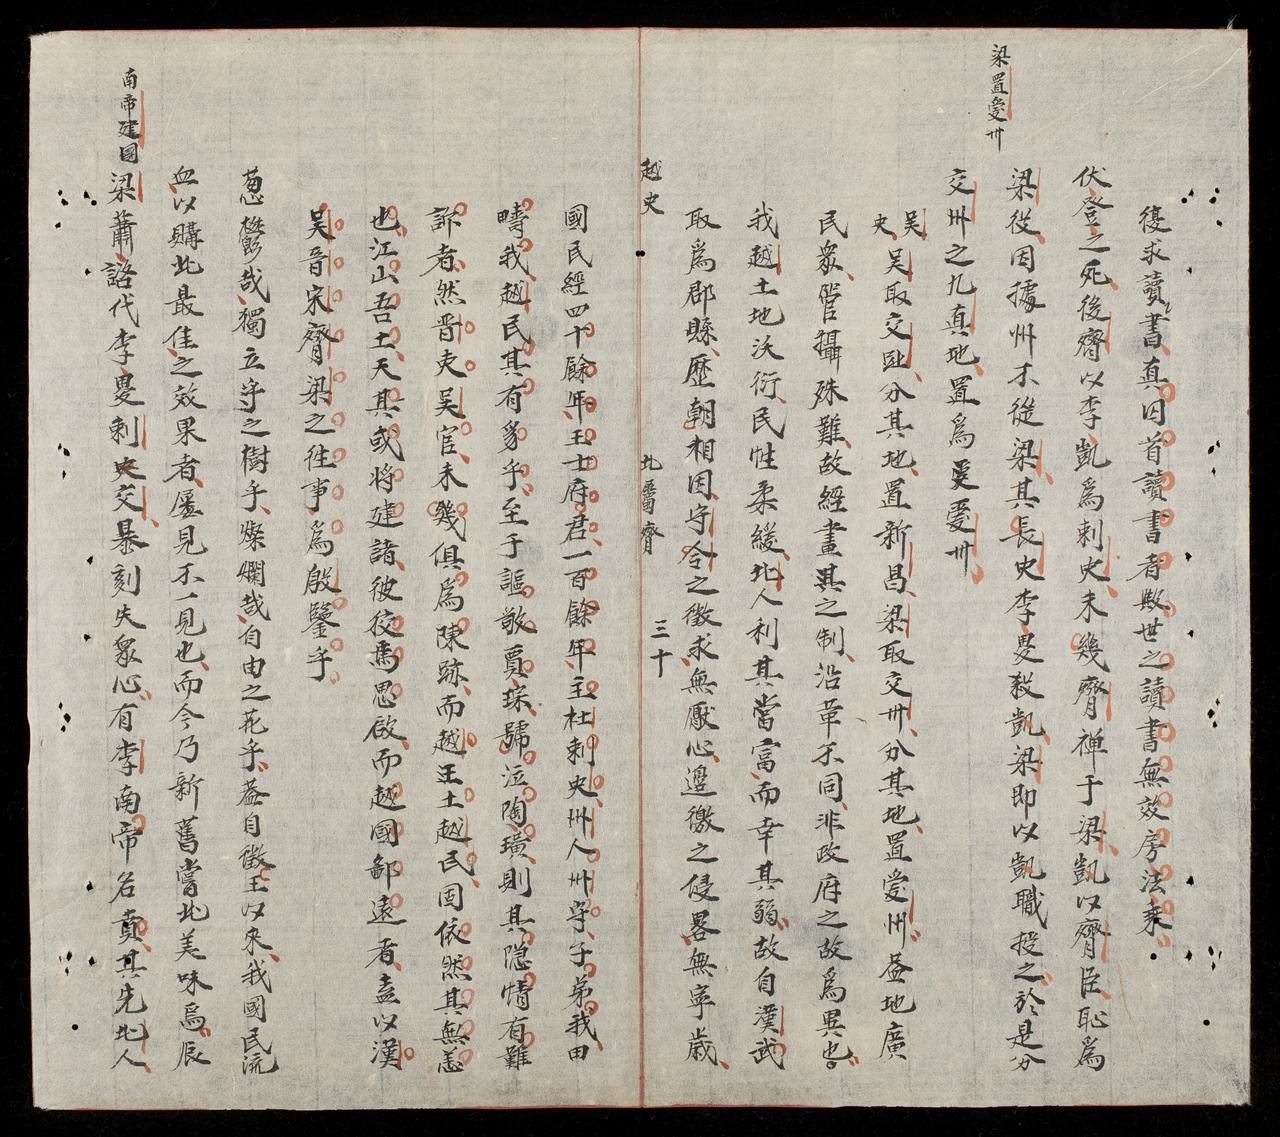 復求讀書真囚首讀書者欺世之讀書無效房法乘
伏登之死後齊以李凱爲刺史未幾齊禅于梁凱以齊臣恥爲
梁置愛州
梁從因據州不從梁其長史李㚟殺凱梁即以凱職授之於是分
交州之九真地置爲愛州
吴史
吴取交趾分其地置新昌梁取交州分其地置愛州盖地廣
民衆管攝殊難故經畫其之制沿革不同非政府之故爲異也
我越土地沃衍民性柔緩北人利其當富而幸其弱故自漢武
取爲郡縣歷朝相因守令之徵求無厭心邊徼之侵畧無寧歳
越史
北屬齊
三十
國民經四十餘年王士府君一百餘年主杜刺史州人州守子弟我田
疇我越民其有豸乎至于謳歌賈琮號泣陶璜則其隐情有難
訴者然晋吏吴官未幾俱爲陳跡而越王土越民固依然其無恙
也江山吾土天其或將建諸彼狡焉思啟而越國鄙遠者盍以漢
吴晋宋齊梁之徃事爲殷鑒乎
葱鬱哉獨立守之樹乎燦爛哉自由之花乎盖自徵王以來我國民流
血以購此最佳之效果者屢見不一見也而今乃新舊嘗此美味焉辰
南帝建國
梁蕭諮代李㚟刺史交暴刻失衆心有李南帝名賁其先北人